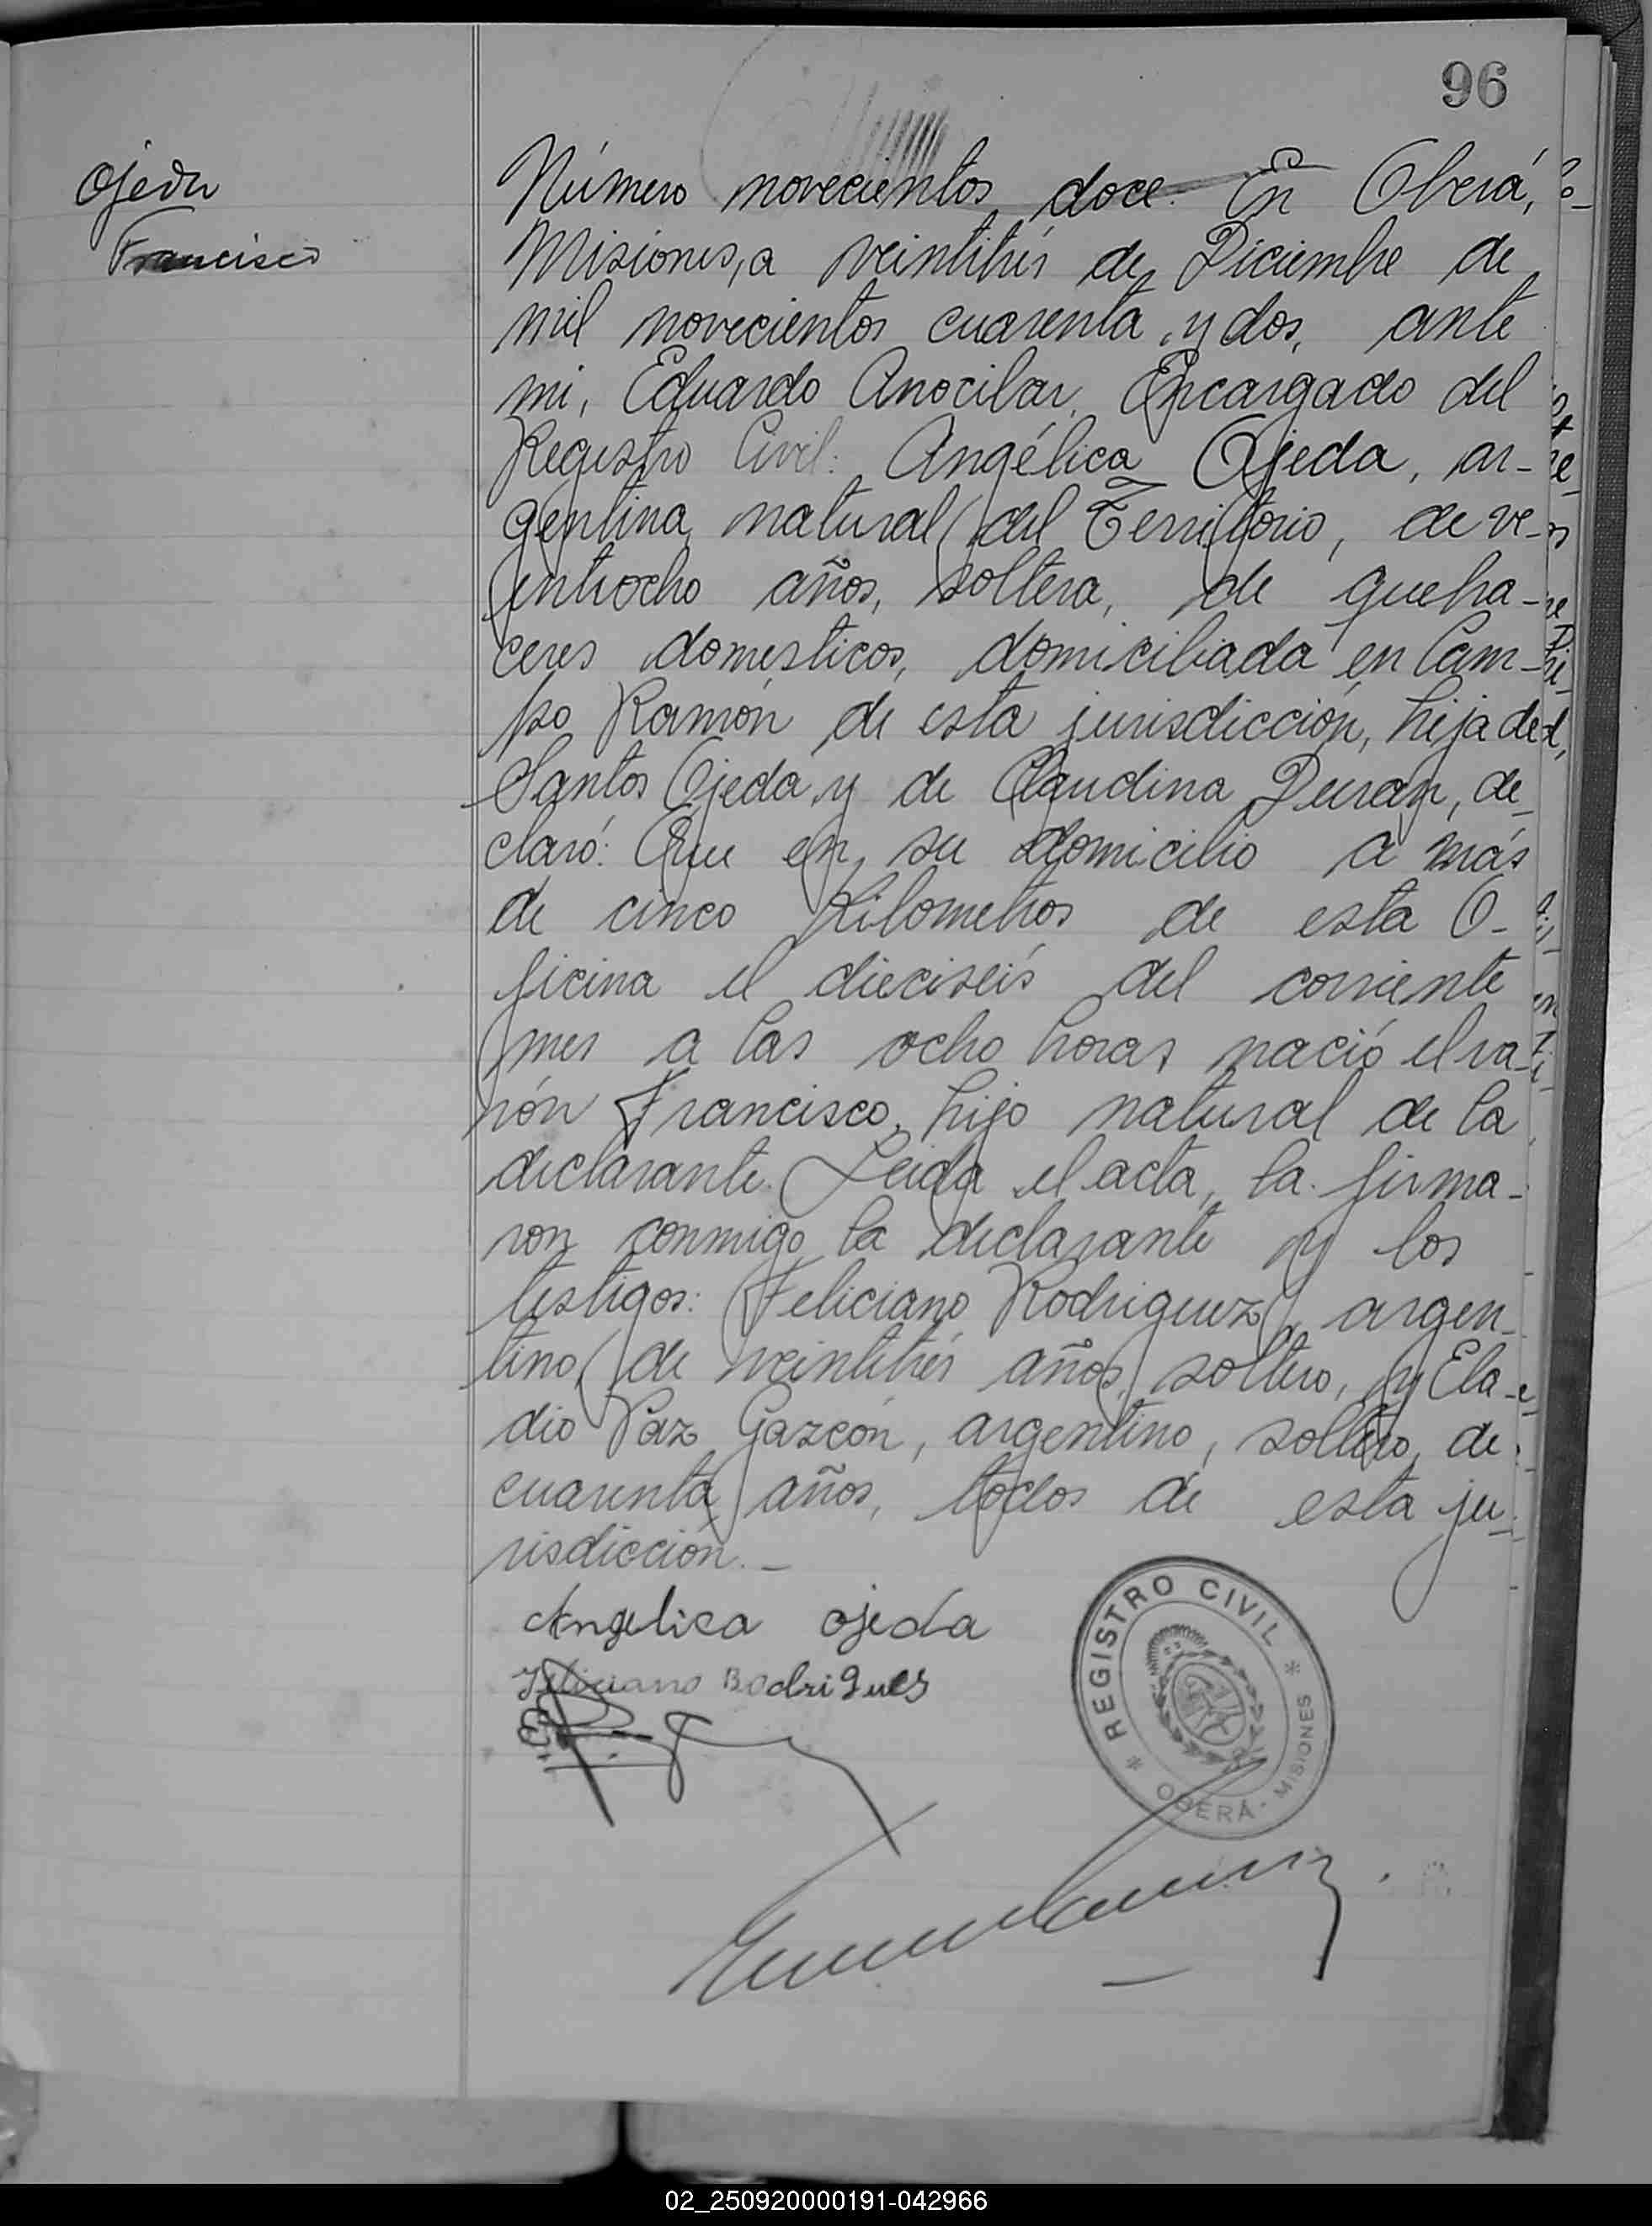 96
Ojeda
Francisco
Número novecientos doce. En Oberá,
Misiones, a veintitrés de Diciembre de
mil novecientos cuarenta y dos, ante
mi, Eduardo Anocibar, Encargado del
Registro Civil: Angélica Ojeda, ar-
gentina natural del Territorio, de ve-
intiocho años, soltera, de queha-
ceres domesticos, domiciliada en Cam-
po Ramón de esta jurisdicción, hija de
Santos Ojeda y de Claudina Duran, de-
claró: Que en su domicilio a más
de cinco kilometros de esta O-
ficina el dieciseis del corriente
mes a las ocho horas nació el va-
rón Francisco, hijo natural de la
declarante. Leida el acta, la firma-
ron conmigo la declarante y los
testigos: Feliciano Rodriguez, argen-
tino, de veintitrés años, soltero, y Ela-
dio Paz Gazcón, argentino, soltero, de
cuarenta años, todos de esta ju-
risdicción.-
Angelica Ojeda
Feliciano Rodrigues
REGISTRO CIVIL
OBERÁ - MISIONES
02_250920000191-042966